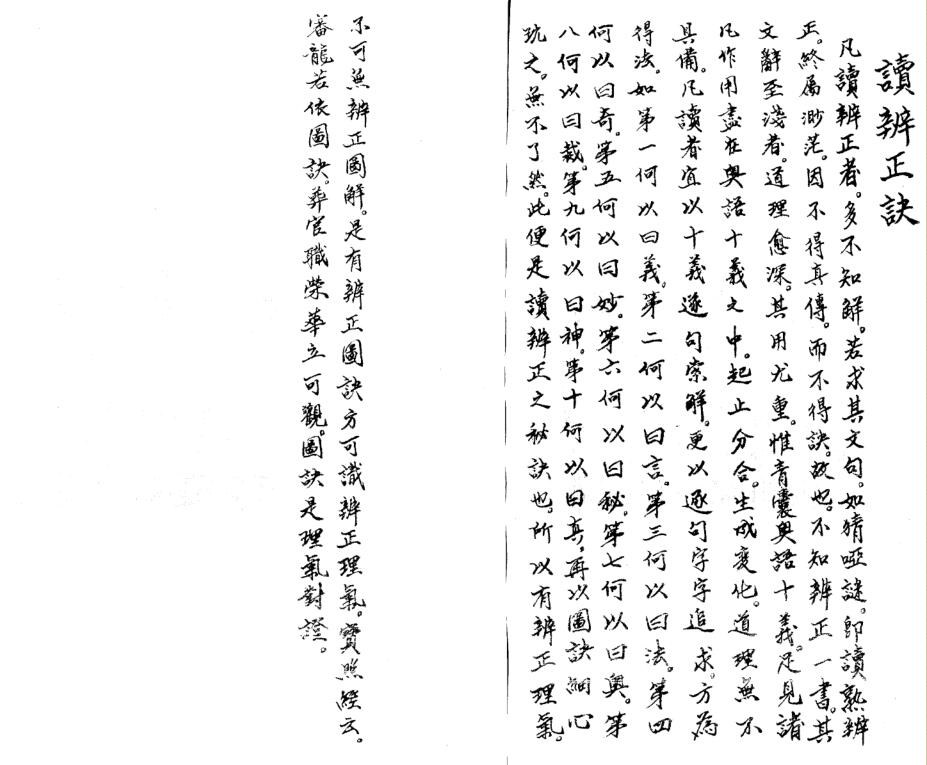 讀辨正訣
凡讀辨正者。多不知解。若求其文句。如猜啞謎。即讀熟辨
正。終屬渺茫。因不得真傳。而不得訣。故也。不知辨正一書。其
文辭至淺者。道理愈深。其用尤重。惟青囊奧語十義。足見諸
凡作用盡在奧語十義之中。起止分合。生成变化。道理無不
具備。凡讀者宜以十義逐句索解。更以逐句字字追求。方為
得法。如第一何以曰義。第二何以曰言。第三何以曰法。第四
何以曰奇。第五何以曰妙。第六何以曰秘。第七何以曰奧。第
八何以曰裁。第九何以曰神。第十何以曰真，再以圖訣細心
玩之。無不了然。此便是讀辨正之秘訣也。所以有辨正理氣。
不可無辨正圖解。是有辨正圖訣方可識辨正理氣。寶照經云。
審龍若依圖訣。葬官職榮華立可觀。圖訣是理氣對證。